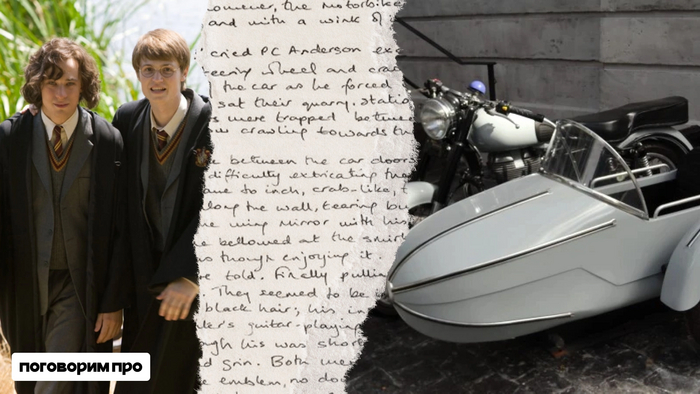 however, the motorbike
and with a wink
cried PC Anderson
wheel and
the car as he forced
sat their quarry, static
were trapped between
crawling towards
between the car doors
difficulty extricating
to inch, crab-like,
along the wall, tearing
wing mirror with his
bellowed at the
though enjoying it.
told. Finally
They seemed to be
black hair; his in
guitar-playing
his was short
grin. Both were
emblem, no
поговорим про